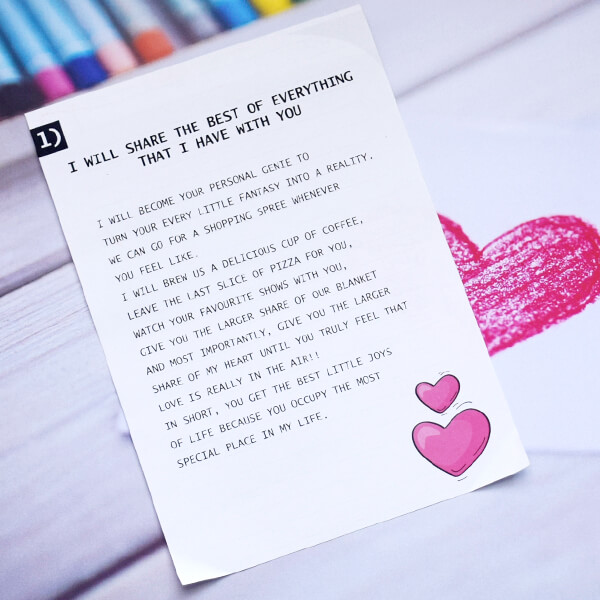 1)
I WILL SHARE THE BEST OF EVERYTHING
THAT I HAVE WITH YOU
I WILL BECOME YOUR PERSONAL GENIE TO
TURN YOUR EVERY LITTLE FANTASY INTO A REALITY.
WE CAN GO FOR A SHOPPING SPREE WHENEVER
YOU FEEL LIKE.
I WILL BREW US A DELICIOUS CUP OF COFFEE,
LEAVE THE LAST SLICE OF PIZZA FOR YOU,
WATCH YOUR FAVOURITE SHOWS WITH YOU,
GIVE YOU THE LARGER SHARE OF OUR BLANKET
AND MOST IMPORTANTLY, GIVE YOU THE LARGER
SHARE OF MY HEART UNTIL YOU TRULY FEEL THAT
LOVE IS REALLY IN THE AIR!!
IN SHORT, YOU GET THE BEST LITTLE JOYS
OF LIFE BECAUSE YOU OCCUPY THE MOST
SPECIAL PLACE IN MY LIFE.